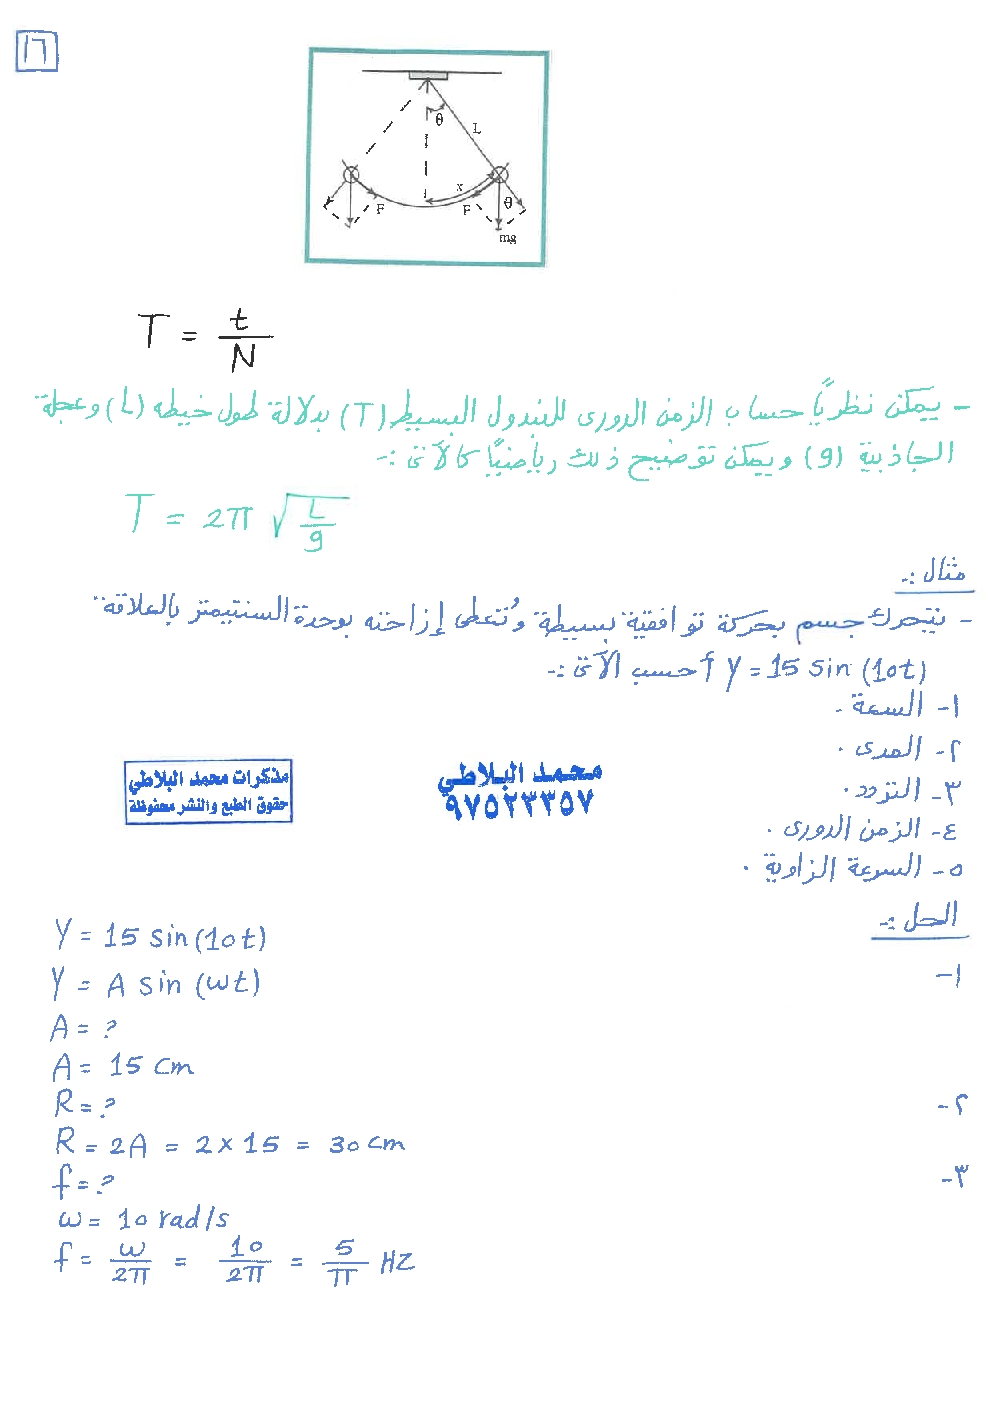 ١٦
θ
L
x
F
F
θ
mg
T = t/N
- يمكن نظرياً حساب الزمن الدورى للبندول البسيط (T) بدلالة طول خيطه (L) وعجلة
الجاذبية (g) ويمكن توضيح ذلك رياضياً كالآتى :-
T = 2π √(L/g)
مثال :-
- يتحرك جسم بحركة توافقية بسيطة وتُعطى إزاحته بوحدة السنتيمتر بالعلاقة
y = 15 sin (10t) أحسب الآتى :-
١- السعة .
٢- المدى .
٣- التردد .
٤- الزمن الدورى .
٥- السرعة الزاوية .
مذكرات محمد البلاطي
حقوق الطبع والنشر محفوظة
محمد البلاطي
٩٧٥٢٣٣٥٧
الحل :-
y = 15 sin (10t)
١-
y = A sin (ωt)
A = ?
A = 15 cm
٢-
R = ?
R = 2A = 2 × 15 = 30 cm
٣-
f = ?
ω = 10 rad/s
f = ω/2π = 10/2π = 5/π HZ